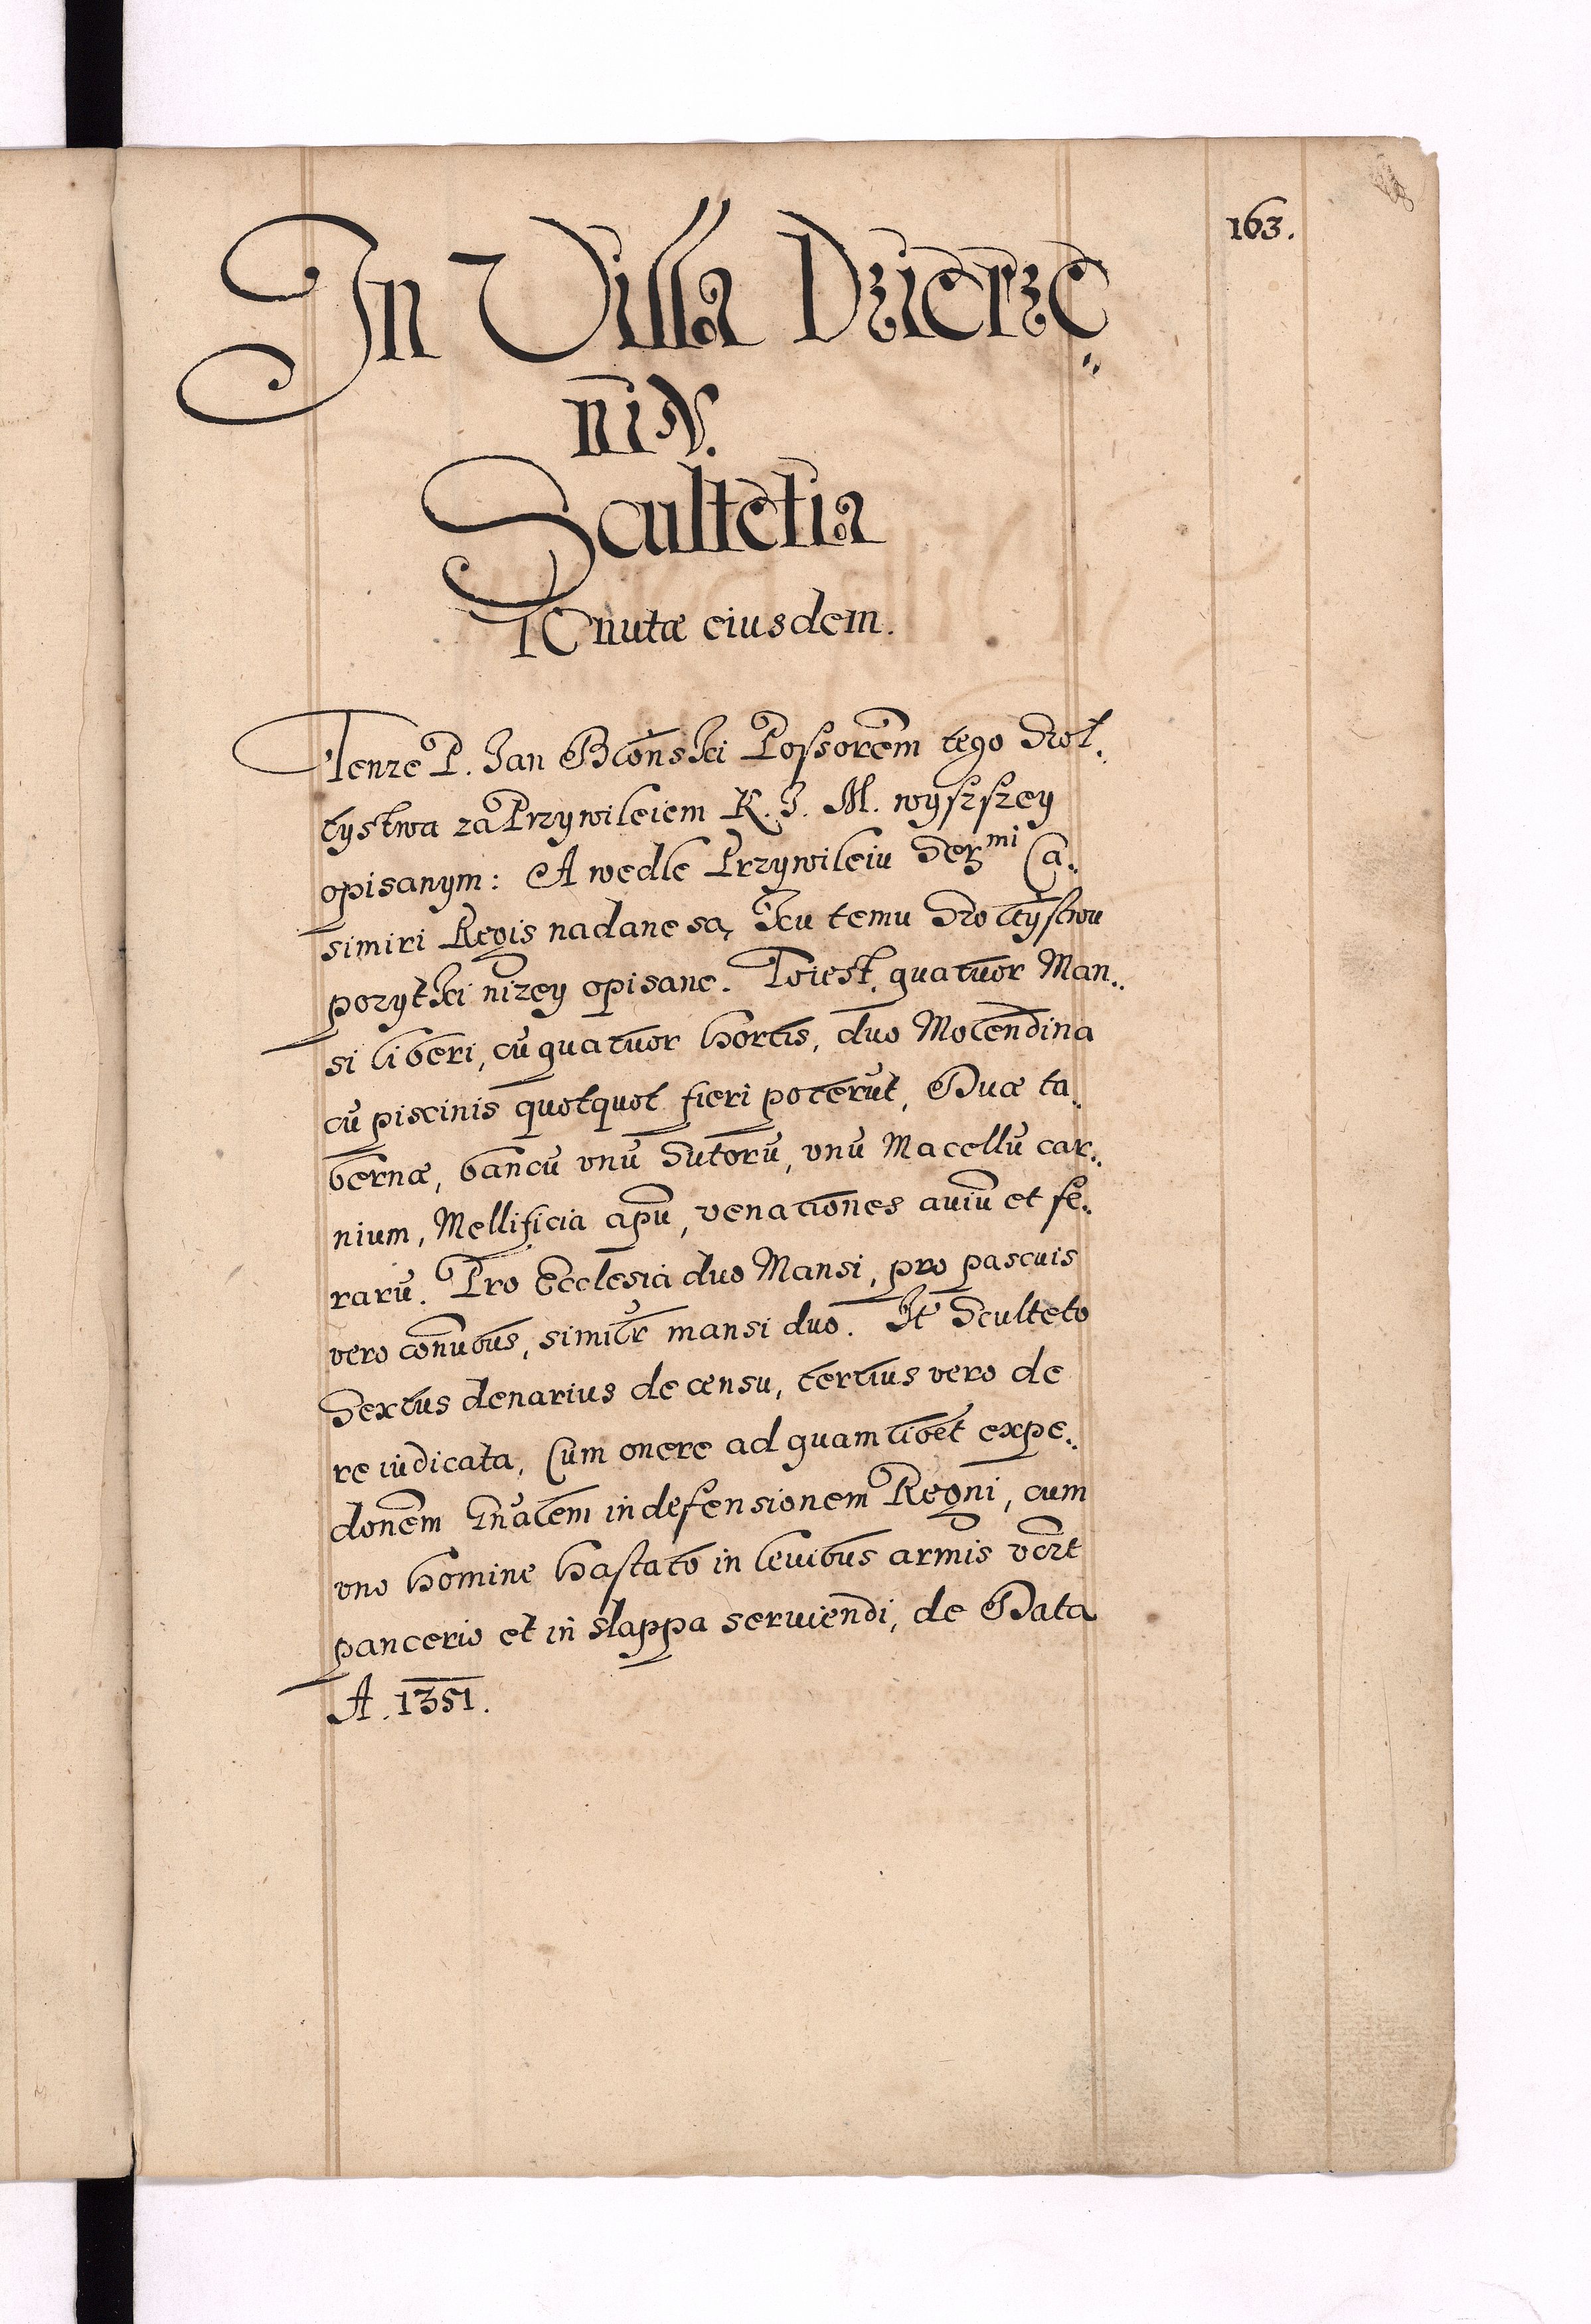 163.
In Villa Dzierzę„
nin.
Scultetia
Tenutæ eiusdem.
Tenze P. Jan Błoński Possorem tego Szoł„
tystwa za Przywileiem K. J. M. wyszszey
opisanym: A wedle Przywileiu Serᵐⁱ Ca„
simiri Regis nadane są, ku temu Szołtystwu
pozytki nizey opisane. Toiest, quatuor Man„
si liberi, cū quatuor hortis, duo Molendina
cū piscinis quotquot fieri poterūt, Duæ ta„
bernæ, bancū vnū Sutorū, vnū Macellū car„
nium, Mellificia apū, venationes auiū et fe„
rarū. Pro Ecclesia duo Mansi, pro pascuis
vero cōnubus, similr mansi duo. It Sculteto
Sextus denarius de censu, tertius vero de
re iudicata, Cum onere ad quamlibet expe„
donem gnałem in defensionem Regni, cum
vno homine hastato in leuibus armis vczt
pancerio et in slappa seruiendi, de Data
A. 1351.